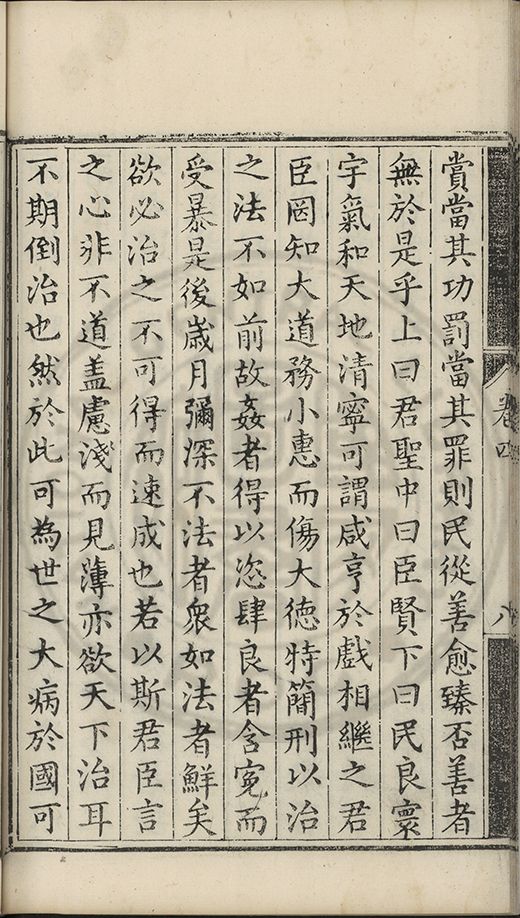 卷四
八
賞當其功罰當其罪則民從善愈臻否善者
無於是乎上曰君聖中曰臣賢下曰民良寰
宇氣和天地清寧可謂咸亨於戲相繼之君
臣罔知大道務小惠而傷大德特簡刑以治
之法不如前故姦者得以恣肆良者含冤而
受暴是後歲月彌深不法者衆如法者鮮矣
欲必治之不可得而速成也若以斯君臣言
之心非不道盖慮淺而見薄亦欲天下治耳
不期倒治也然於此可為世之大病於國可